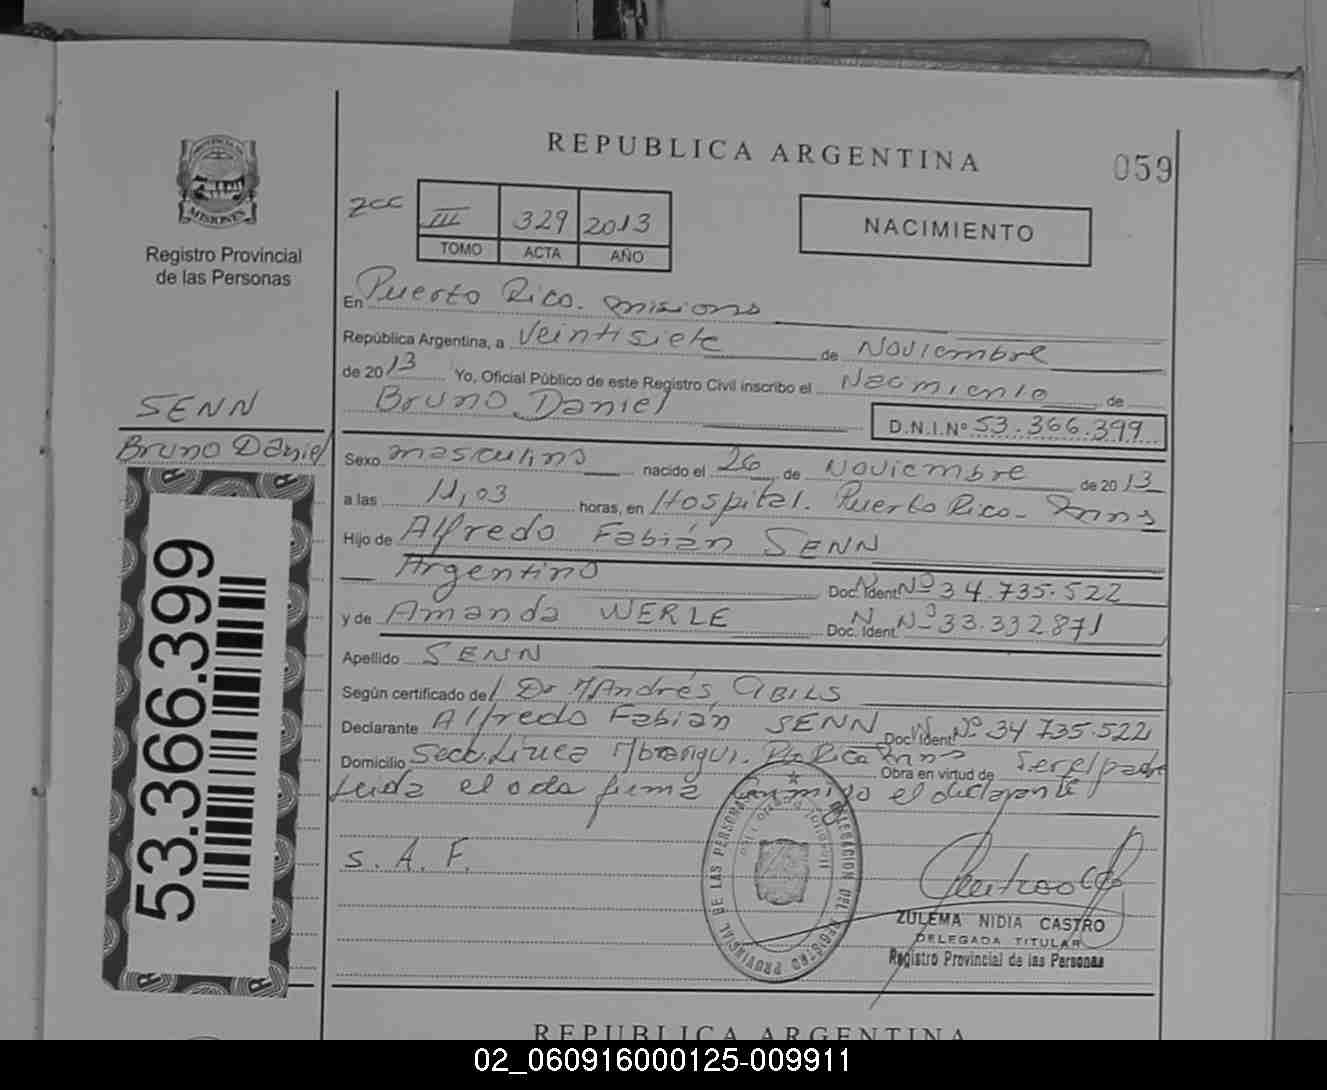 REPUBLICA ARGENTINA
059
PROVINCIA DE
MISIONES
Registro Provincial
de las Personas
2cc
III 329 2013
TOMO ACTA AÑO
NACIMIENTO
En Puerto Rico. misiones
República Argentina, a Veintisiete de Noviembre
de 2013 Yo, Oficial Público de este Registro Civil inscribo el Nacimiento de
Bruno Daniel
D.N.I.Nº 53.366.399
SENN
Bruno Daniel
Sexo masculino nacido el 26 de Noviembre de 2013
a las 11,03 horas, en Hospital. Puerto Rico - Mnes
Hijo de Alfredo Fabián SENN
Argentino Doc. Ident. Nº 34.735.522
y de Amanda WERLE Doc. Ident. Nº 33.332871
Apellido SENN
Según certificado del Dr Andrés ABILS
Declarante Alfredo Fabián SENN Doc. Ident. Nº 34 735.522
Domicilio Secc. Línea Obra en virtud de Ser el padre
Leida el acta firma conmigo el declarante
S. A. F.
53.366.399
DELEGACION DEL REGISTRO PROVINCIAL DE LAS PERSONAS
ZULEMA NIDIA CASTRO
DELEGADA TITULAR
Registro Provincial de las Personas
REPUBLICA ARGENTINA
02_060916000125-009911